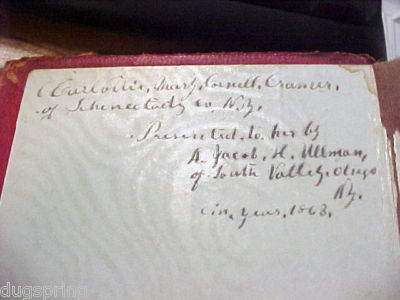 Mary, Cornell, Cramer,
of Schenectady co. N.Y.
Presented. to. her by
A. Jacob. H. Ullman,
of South Valley. otsego
N.Y.
in. year. 1863.
dugspring